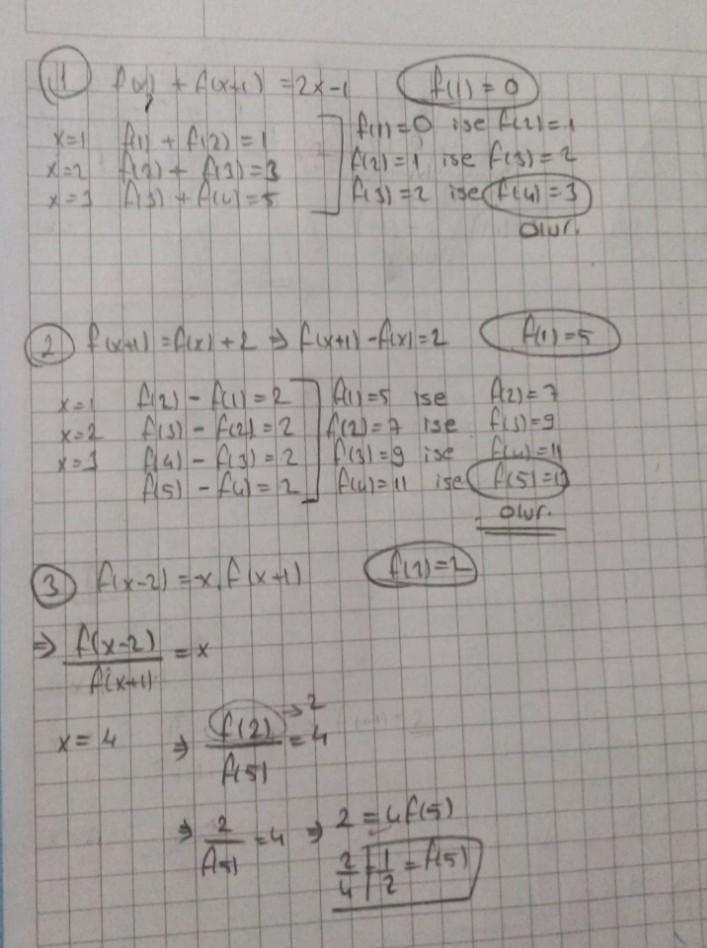 1 f(x) + f(x+1) = 2x-1 f(1) = 0
x=1 f(1) + f(2) = 1 f(1)=0 ise f(2)=1
x=2 f(2) + f(3) = 3 f(2)=1 ise f(3)=2
x=3 f(3) + f(4) = 5 f(3)=2 ise f(4)=3
olur.
2 f(x+1) = f(x) + 2 ⇒ f(x+1) - f(x) = 2 f(1) = 5
x=1 f(2) - f(1) = 2 f(1)=5 ise f(2)=7
x=2 f(3) - f(2) = 2 f(2)=7 ise f(3)=9
x=3 f(4) - f(3) = 2 f(3)=9 ise f(4)=11
f(5) - f(4) = 2 f(4)=11 ise f(5)=13
olur.
3 f(x-2) = x.f(x+1) f(2)=2
⇒ f(x-2)/f(x+1) = x
x = 4 ⇒ f(2)/f(5) = 4 → 2
⇒ 2/f(5) = 4 ⇒ 2 = 4f(5)
2/4 = 1/2 = f(5)